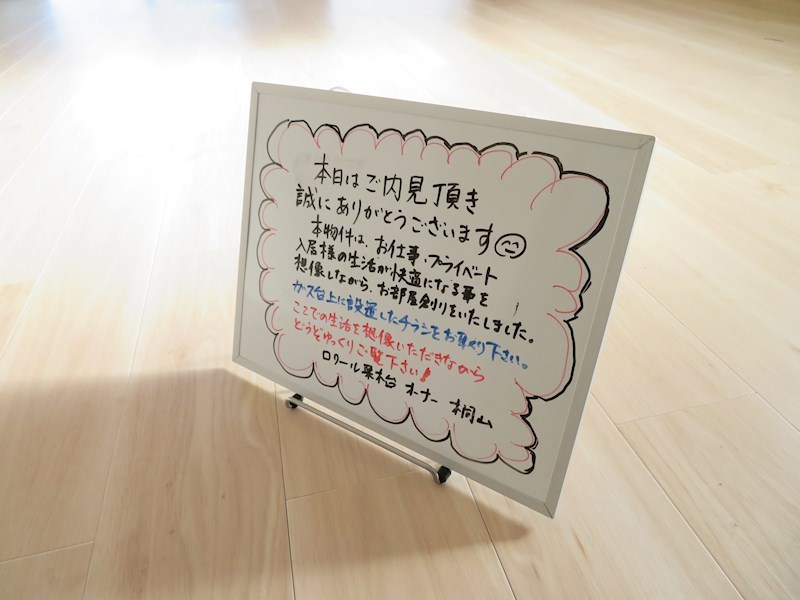 本日はご内見頂き
誠にありがとうございます
本物件は、お仕事・プライベート
入居様の生活が快適になる事を
想像しながら、お部屋創りをいたしました。
ガス台上に設置したチラシをお取り下さい。
ここでの生活を想像いただきながら
どうぞゆっくりご覧下さい!
ロワール栗木台 オーナー 桐山